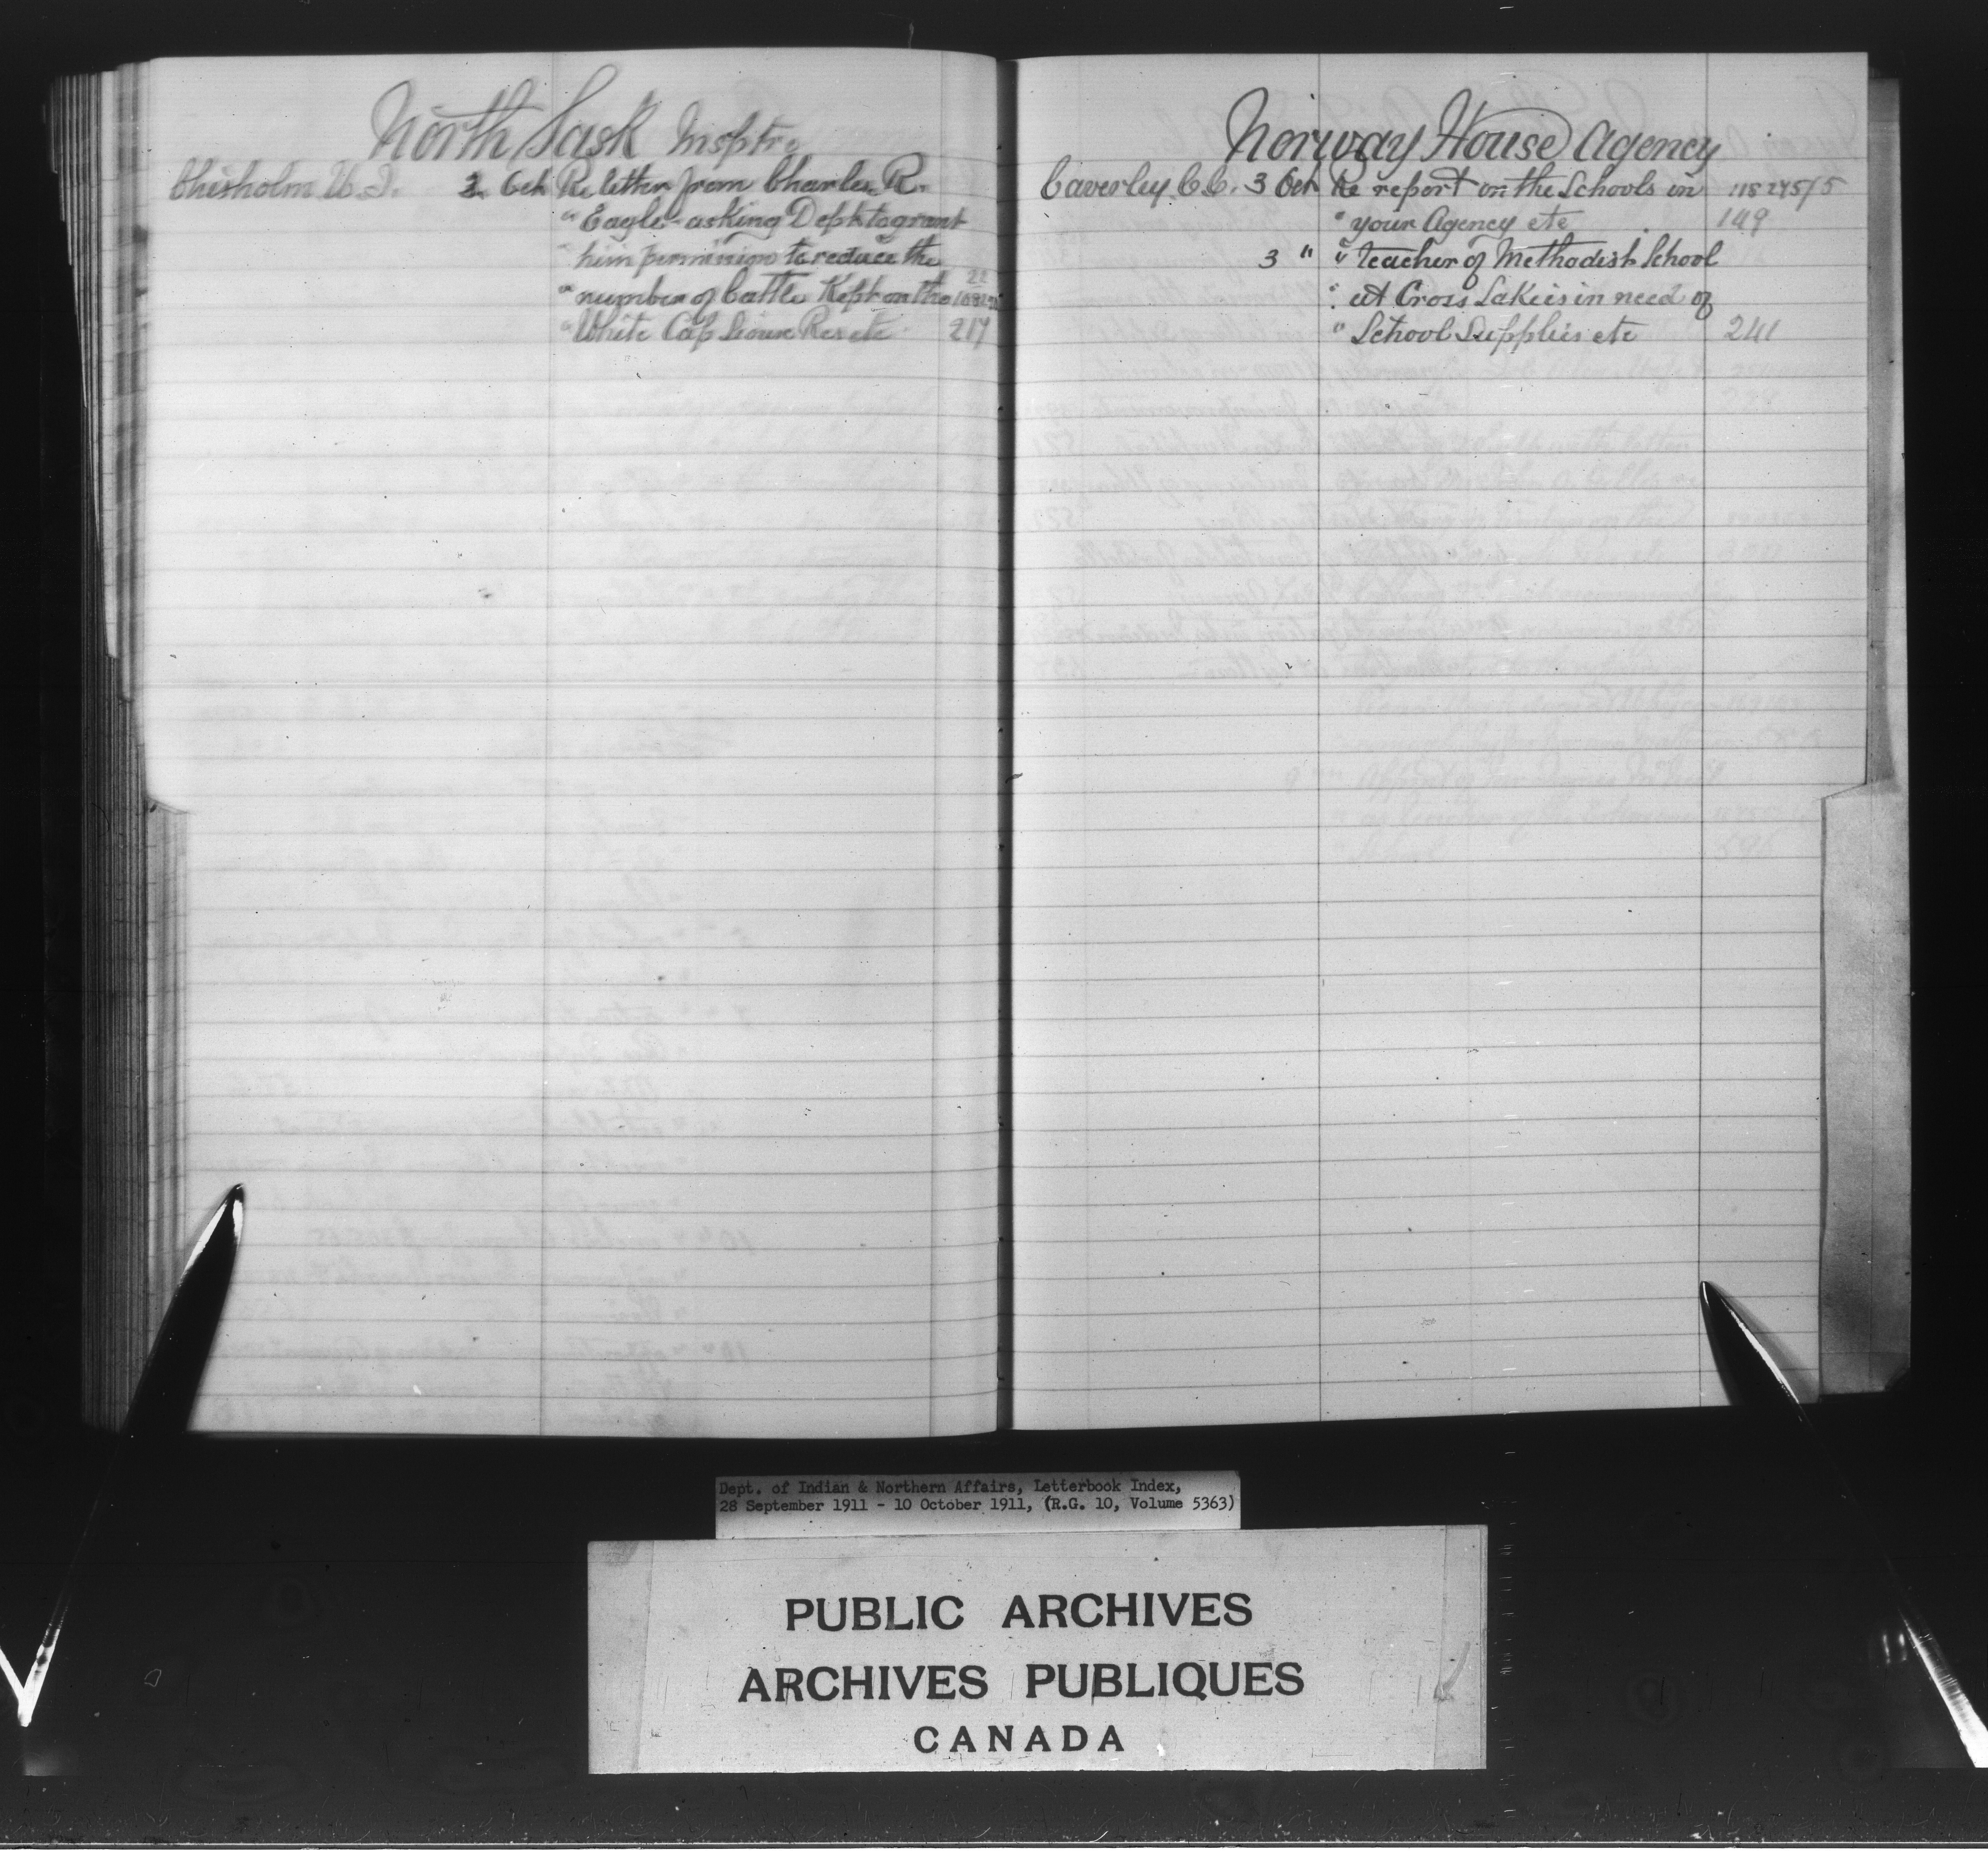 North Sask Insptr.
Chisholm W. J. 3 Oct Re letter from Charles R.
" Eagle - asking Dept to grant
" him permission to reduce the
" number of Cattle Kept on the
" White Cap Sioux Res etc 217
Norway House Agency
Caverley C.C. 3 Oct Re report on the Schools in 118 245/5
" your Agency etc 149
3 " " teacher of Methodist School
" at Cross Lake is in need of
" School Supplies etc 241
Dept. of Indian & Northern Affairs, Letterbook Index,
28 September 1911 - 10 October 1911, (R.G. 10, Volume 5363)
PUBLIC ARCHIVES
ARCHIVES PUBLIQUES
CANADA